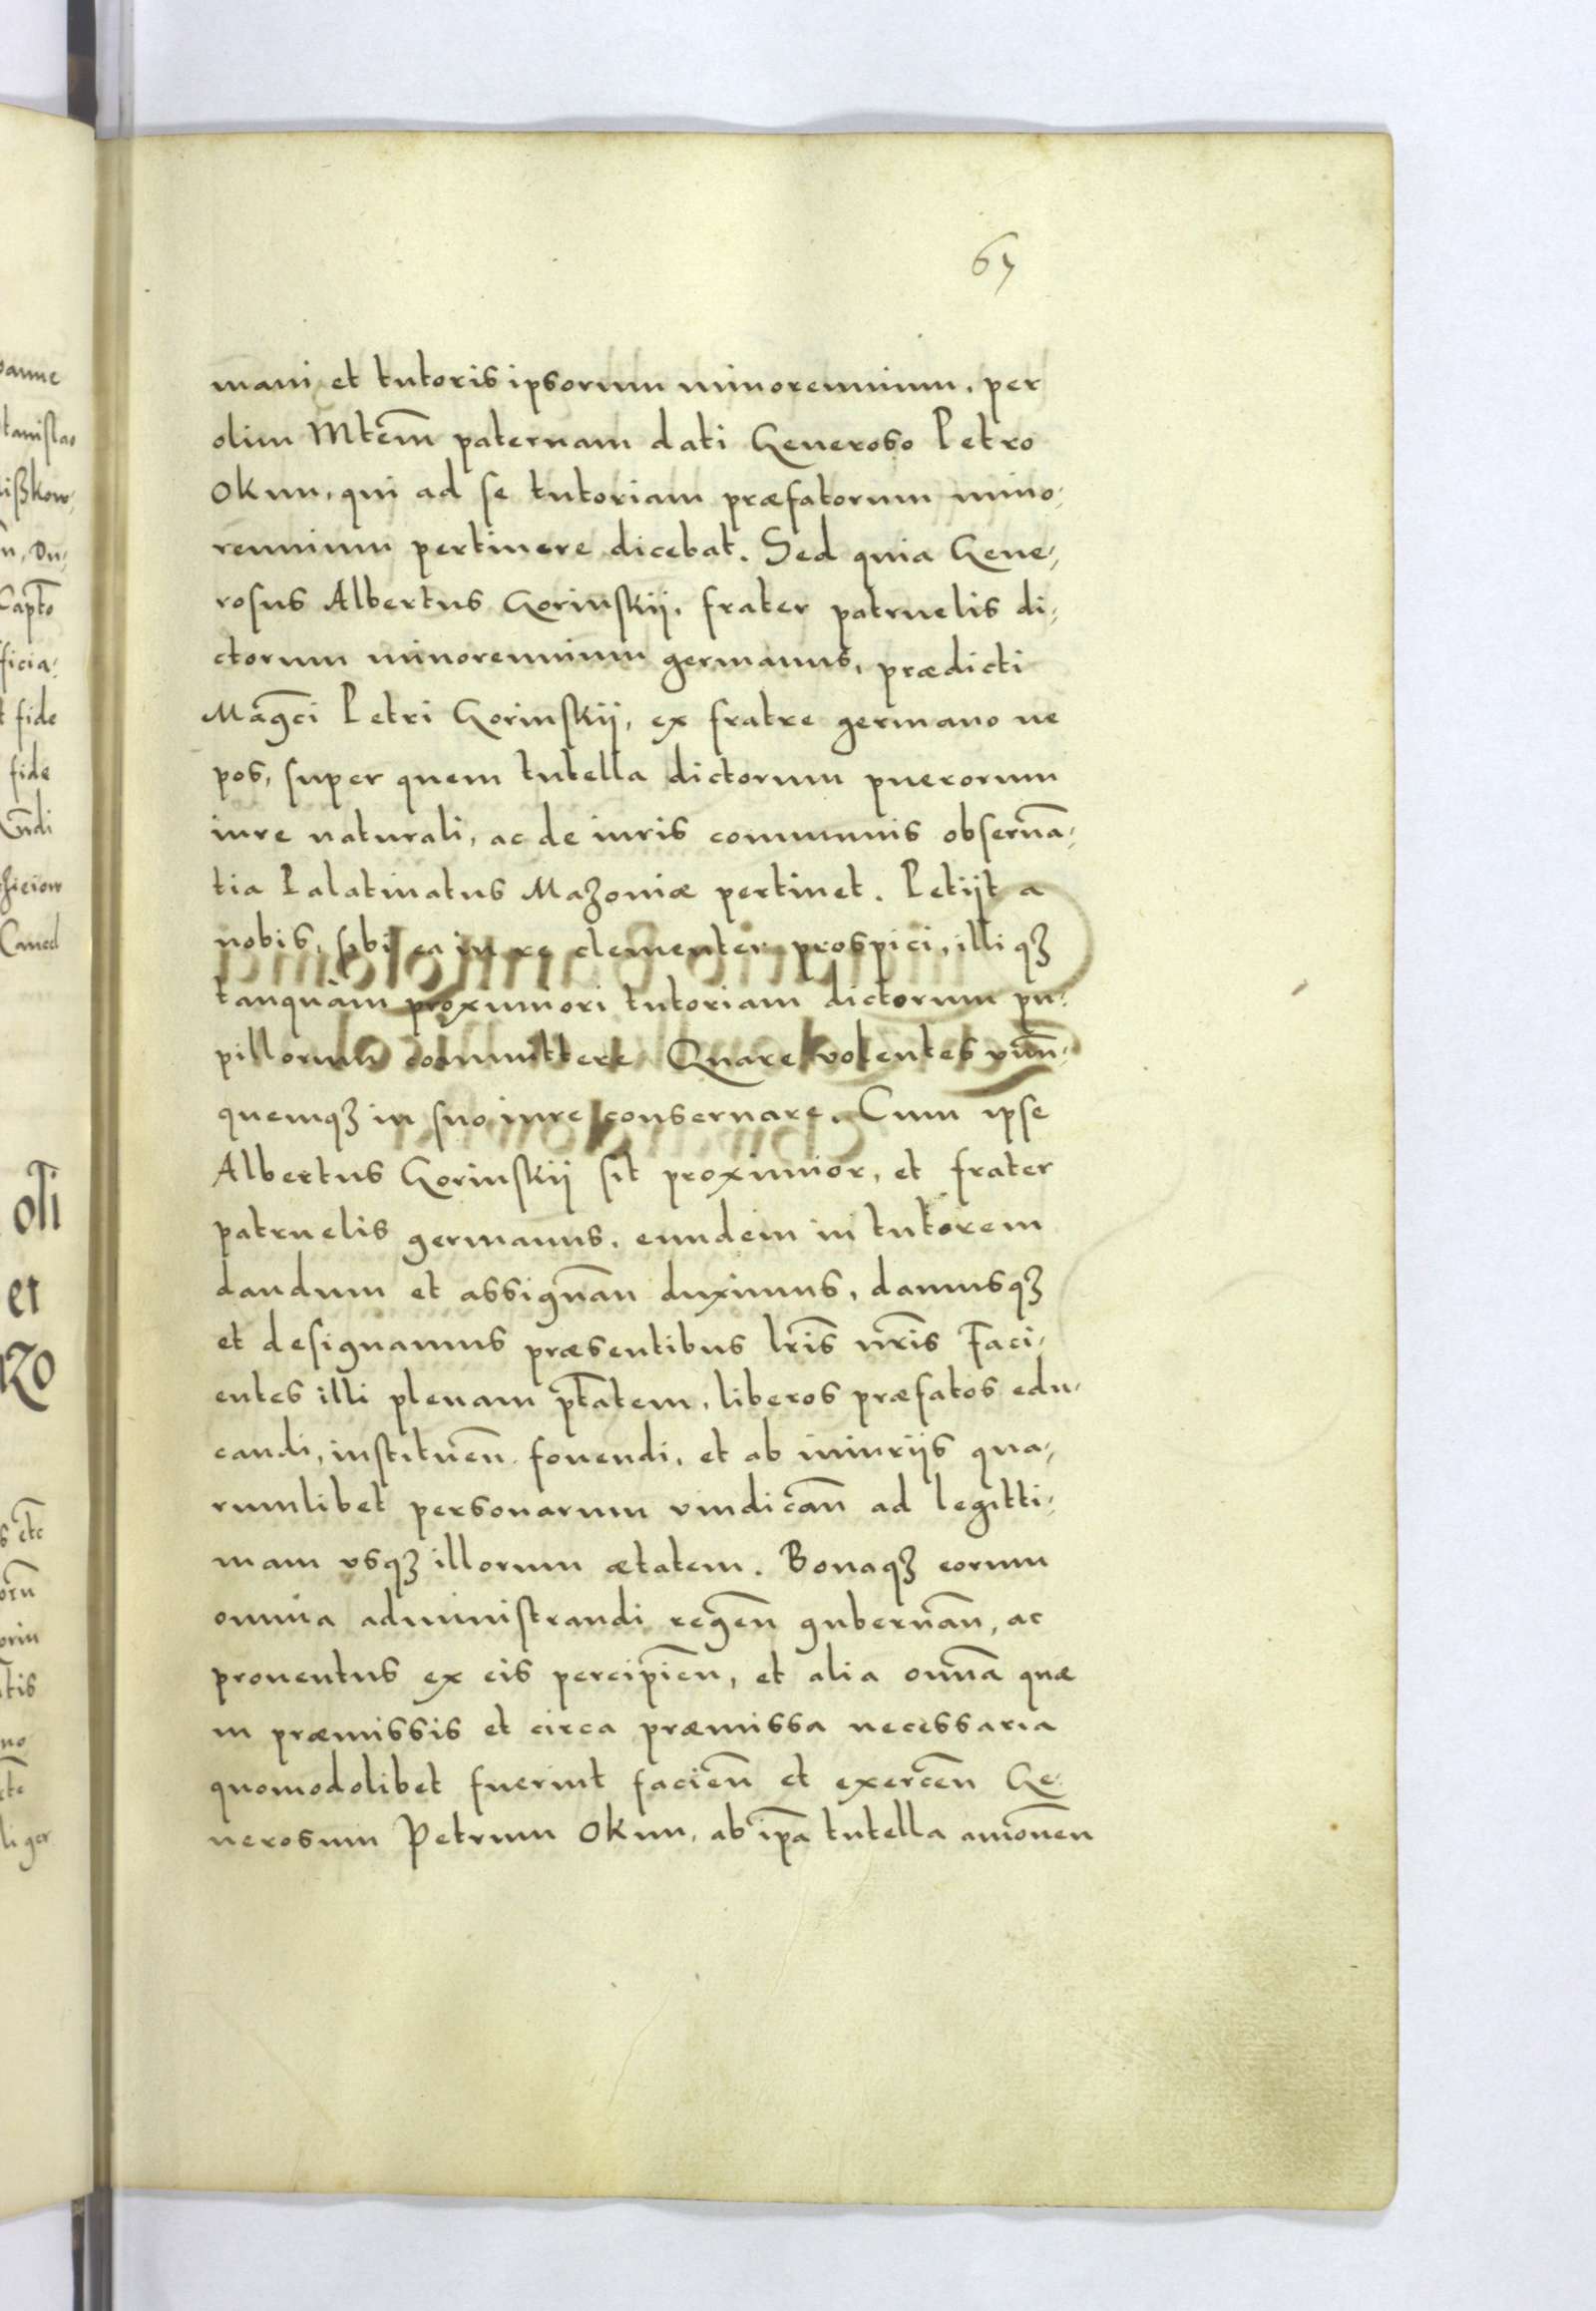 67
mani et tutoris ipsorum minorennium, per
olim Mtem̃ paternam dati Generoso Petro
Okun, qui ad se tutoriam præfatorum mino,
rennium pertinere dicebat. Sed quia Gene,
rosus Albertus Gorinskij, frater patruelis di,
ctorum minorennium germanus, prædicti
Mag̃ci Petri Gorinskij, ex fratre germano ne
pos, super quem tutella dictorum puerorum
iure naturali, ac de iuris communis obserua͂,
tia Palatinatus Mazoniæ pertinet. Petijt a
nobis, sibi ea in re clementer prospici, illi qꝫ
tanquàm proximiori tutoriam dictorum pu,
pillorum committere Quare volentes vnũ,
quemqꝫ in suo iure conseruare. Cum ipse
Albertus Gorinskij sit proximior, et frater
patruelis germanus, eundem in tutorem
dandum et assignañ duximus, damusqꝫ
et designamus præsentibus lr̃is nr̃is Faci,
entes illi plenam pt̃atem, liberos præfatos edu,
candi, instituen̄ fouendi, et ab iniurijs qua,
rumlibet personarum vindicañ ad legitti,
mam vsqꝫ illorum ætatem. Bonaqꝫ eorum
omnia administrandi regeñ gubernañ, ac
prouentus ex eis percipień, et alia omña quæ
in præmissis et circa præmissa necessaria
quomodolibet fuerint facień et exerceñ Ge,
nerosum Petrum Okun, ab ip̃a tutella amoueñ
oli
et
fide
fide